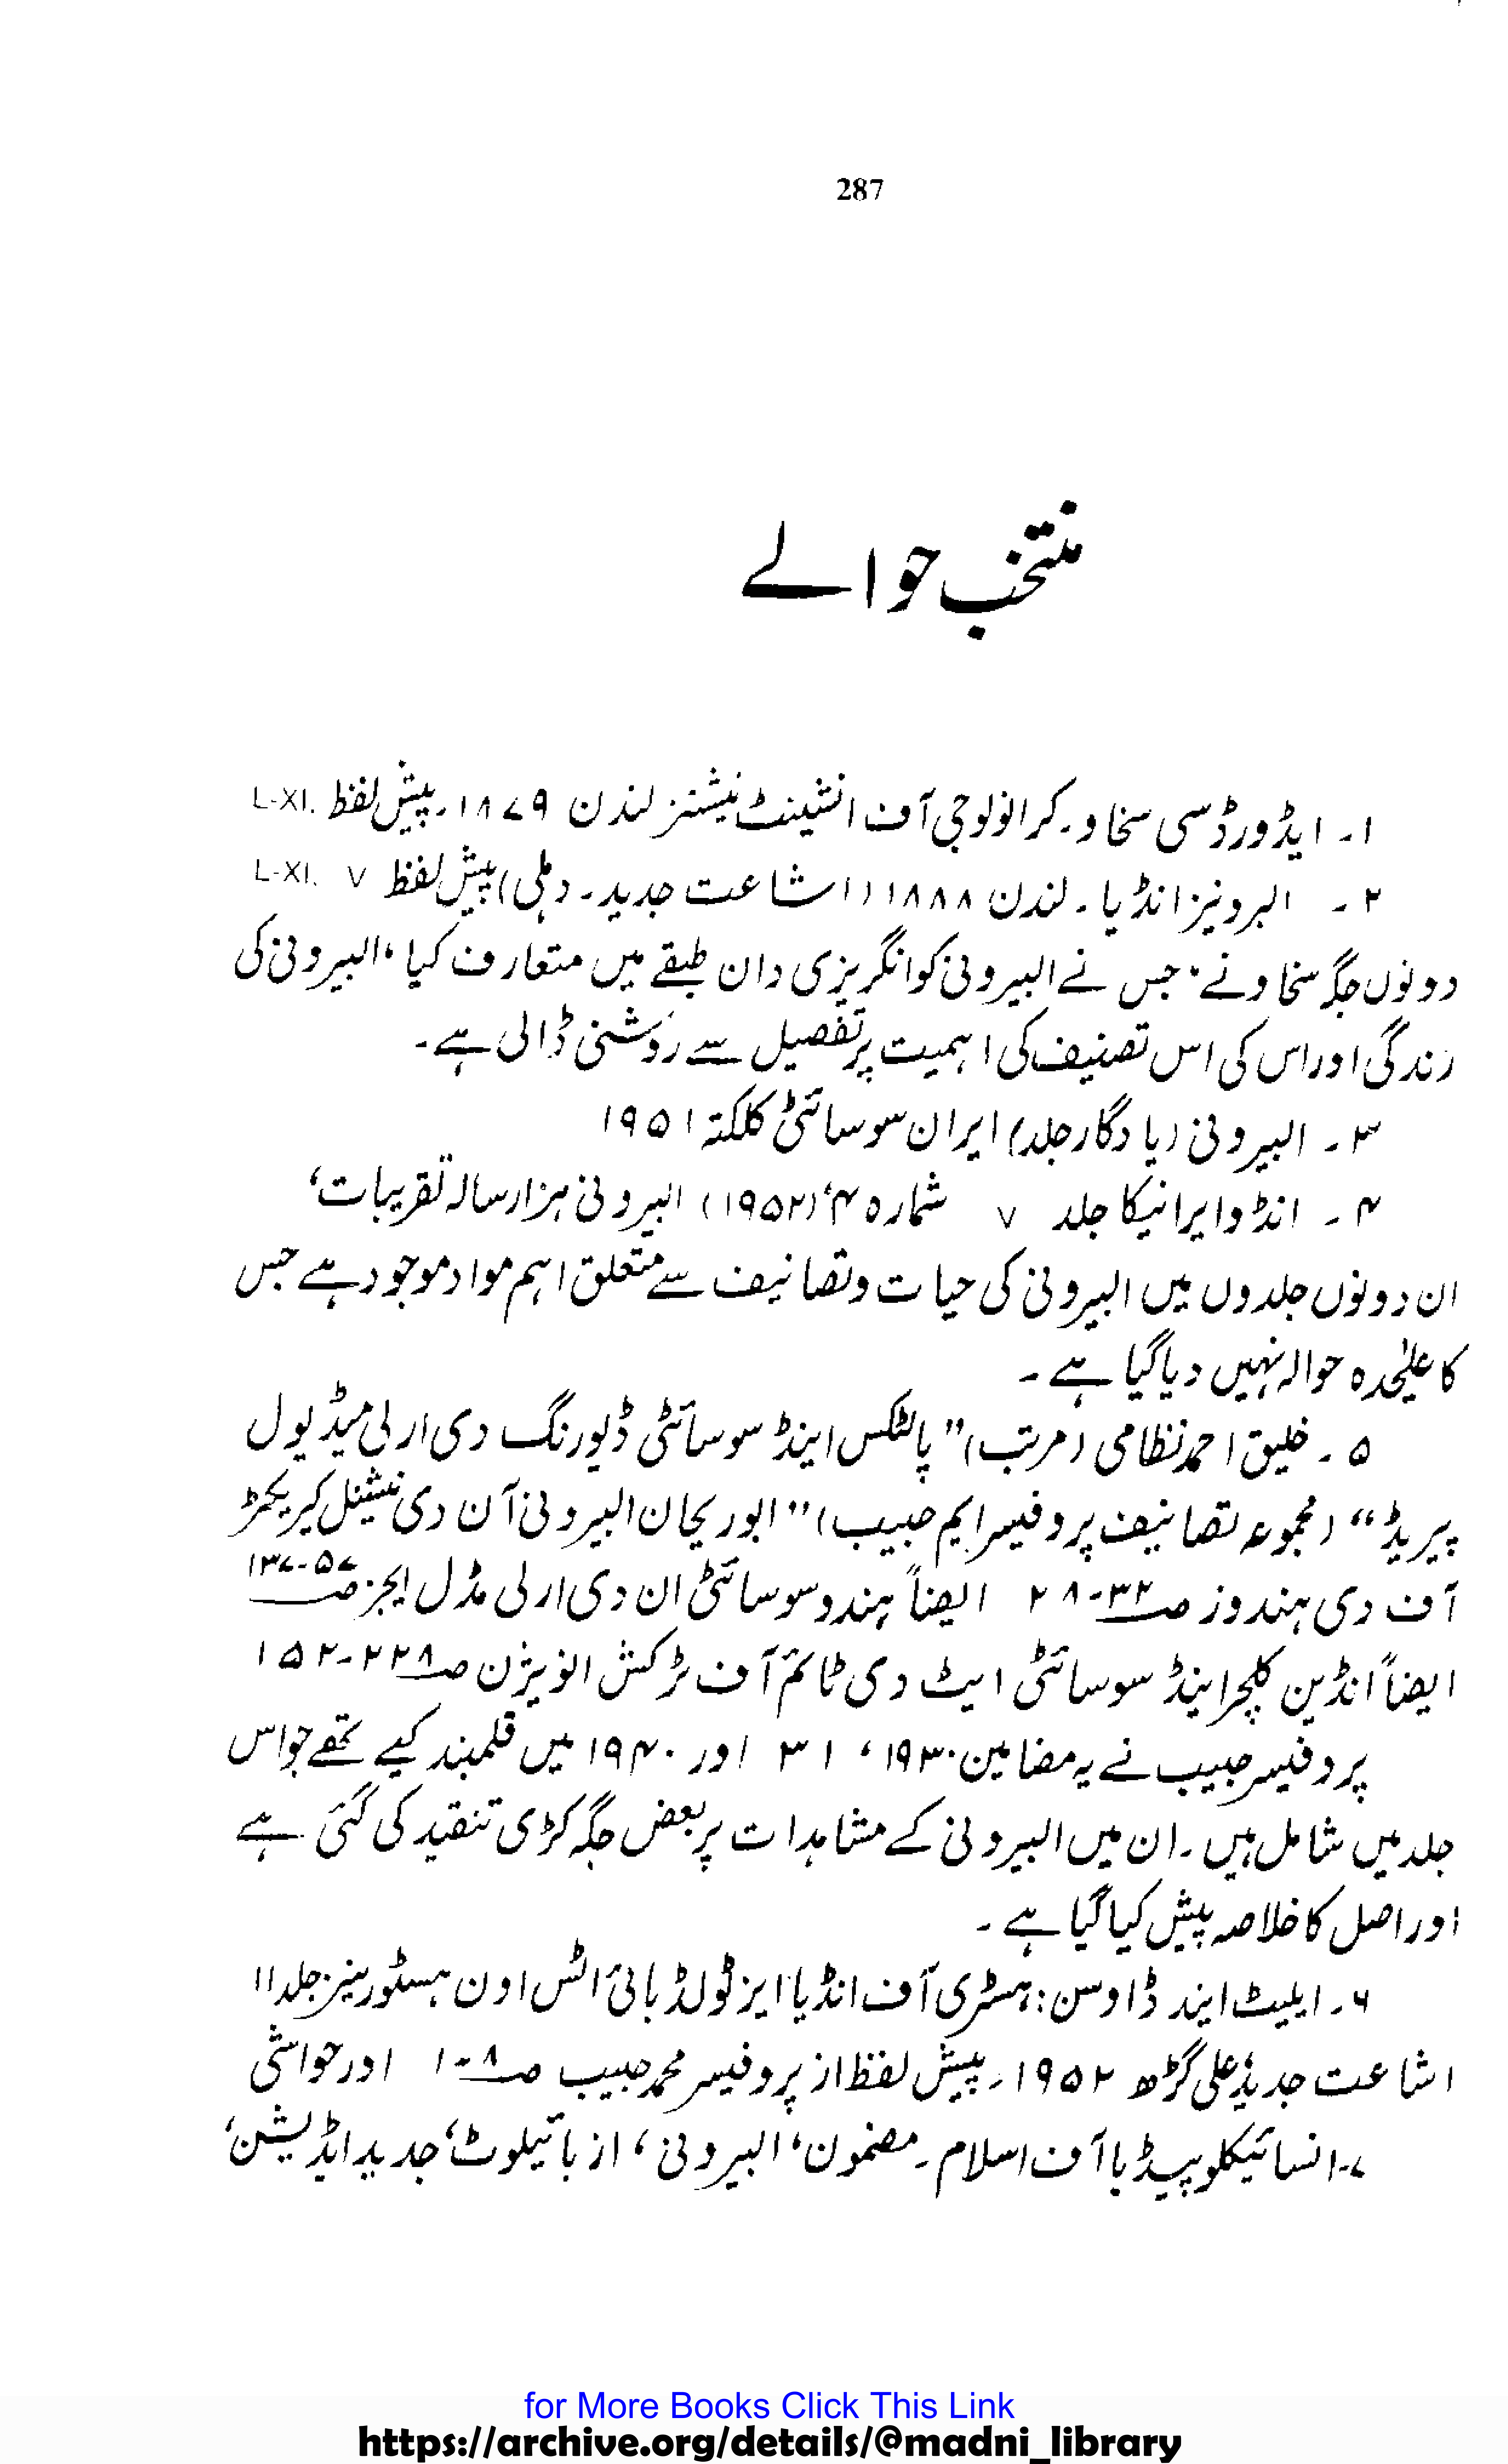 287
منتخب حوالے
۱۔ ایڈورڈ سی سخاو۔ کرانولوجی آف انشینٹ نیشنز لندن ۱۸۷۹۔ پیش لفظ L-XI.
۲۔ البرونیز انڈیا۔ لندن ۱۸۸۸ (اشاعت جدید۔ دہلی) پیش لفظ V L-XI.
دونوں جگہ سخاو نے، جس نے البیرونی کو انگریزی دان طبقے میں متعارف کیا، البیرونی کی
زندگی اور اس کی اس تصنیف کی اہمیت پر تفصیل سے روشنی ڈالی ہے۔
۳۔ البیرونی (یادگار جلد) ایران سوسائٹی کلکتہ ۱۹۵۱
۴۔ انڈو ایرانیکا جلد V شمارہ ۴، (۱۹۵۲) البیرونی ہزار سالہ تقریبات،
ان دونوں جلدوں میں البیرونی کی حیات و تصانیف سے متعلق اہم مواد موجود ہے جس
کا علیٰحدہ حوالہ نہیں دیا گیا ہے۔
۵۔ خلیق احمد نظامی (مرتب) "پالٹکس اینڈ سوسائٹی ڈیورنگ دی ارلی میڈیول
پیریڈ" (مجموعہ تصانیف پروفیسر ایم حبیب) "ابوریحان البیرونی آن دی نیشنل کیریکٹر
آف دی ہندوز صـ ۳۲-۲۸ ایضاً ہندو سوسائٹی ان دی ارلی مڈل ایجز صـ ۵۷-۱۳۷
ایضاً انڈین کلچر اینڈ سوسائٹی ایٹ دی ٹائم آف ٹرکش انویژن صـ ۲۲۸-۱۵۲
پروفیسر حبیب نے یہ مضامین ۱۹۳۰، ۳۱ اور ۱۹۴۰ میں قلمبند کیے تھے جو اس
جلد میں شامل ہیں۔ ان میں البیرونی کے مشاہدات پر بعض جگہ کڑی تنقید کی گئی ہے
اور اصل کا خلاصہ پیش کیا گیا ہے۔
۶۔ ایلیٹ اینڈ ڈاوسن: ہسٹری آف انڈیا ایز ٹولڈ بائی اٹس اون ہسٹورینز جلد II
اشاعت جدید، علی گڑھ ۱۹۵۲۔ پیش لفظ از پروفیسر محمد حبیب صـ ۸-۱ اور حواشی
۷۔ انسائیکلوپیڈیا آف اسلام۔ مضمون، البیرونی، از بائیلوٹ، جدید ایڈیشن،
for More Books Click This Link
https://archive.org/details/@madni_library